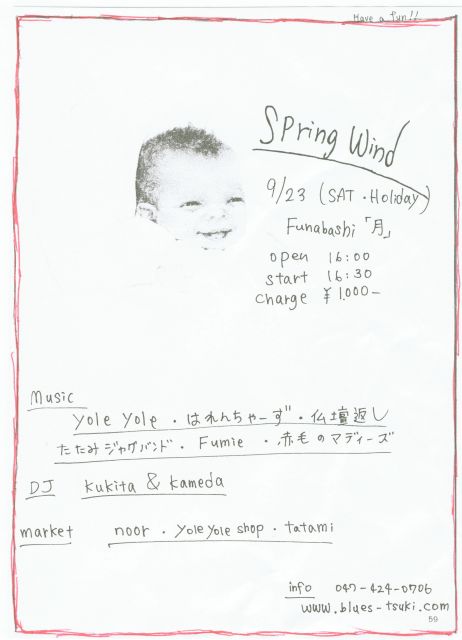 Have a fun!!
Spring Wind
9/23 (SAT・Holiday)
Funabashi「月」
open 16:00
start 16:30
charge ¥1.000-
Music
yole yole・はれんちゃーず・仏壇返し
たたみジャグバンド・Fumie・赤毛のマディーズ
DJ kukita & kameda
market noor・yole yole shop・tatami
info 047-424-0706
www.blues-tsuki.com
59